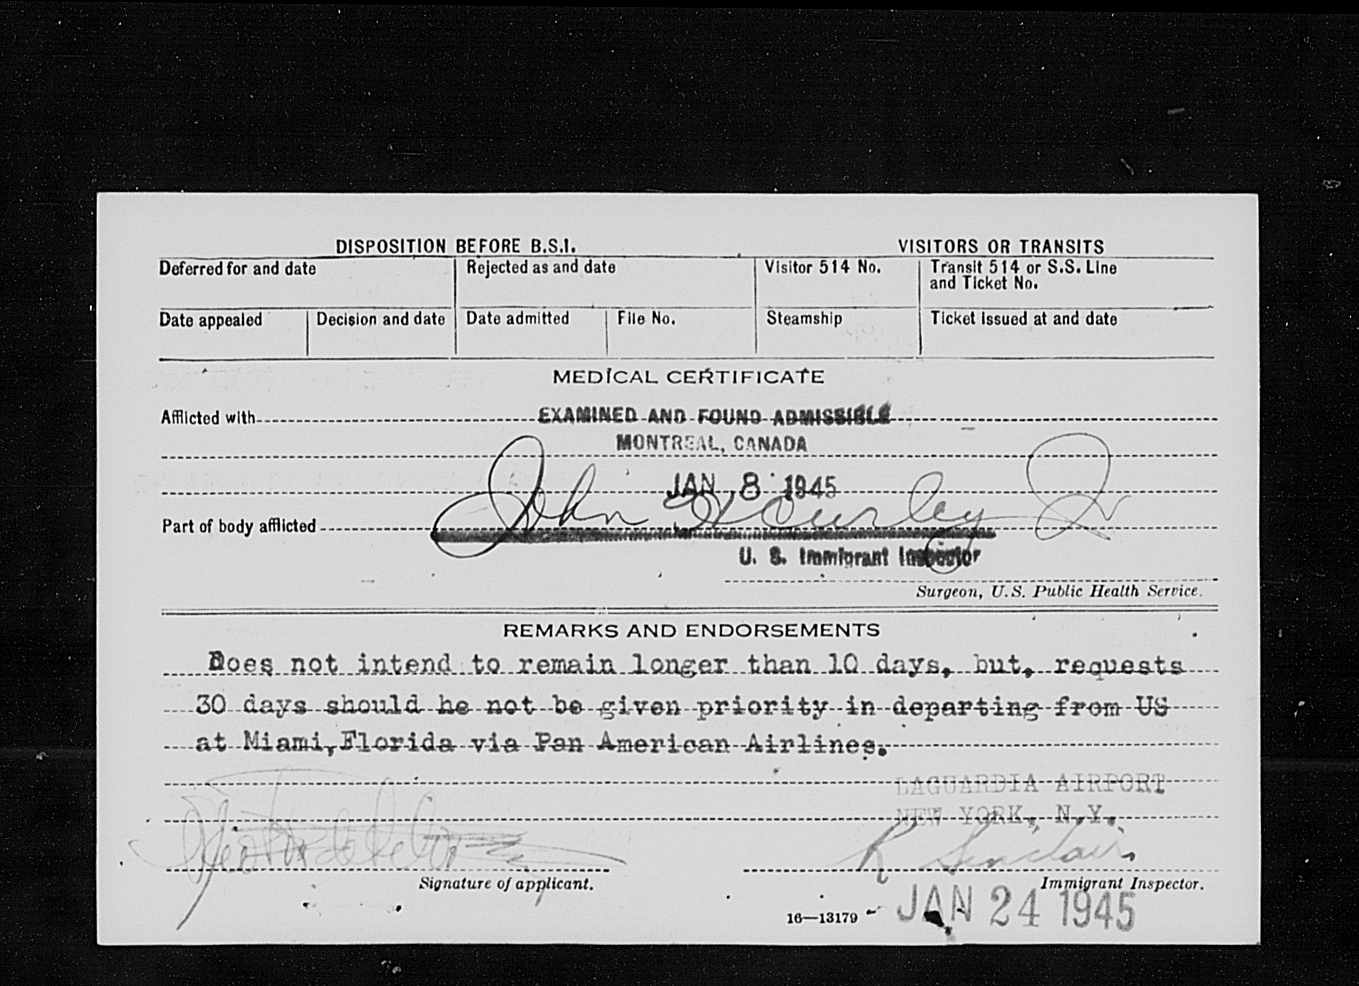 DISPOSITION BEFORE B.S.I. VISITORS OR TRANSITS
Deferred for and date Rejected as and date Visitor 514 No. Transit 514 or S.S. Line
and Ticket No.
Date appealed Decision and date Date admitted File No. Steamship Ticket issued at and date
MEDICAL CERTIFICATE
Afflicted with EXAMINED AND FOUND ADMISSIBLE
MONTREAL, CANADA
JAN 8 1945
John Hourley Jr
Part of body afflicted
U. S. Immigrant Inspector
Surgeon, U.S. Public Health Service.
REMARKS AND ENDORSEMENTS
Does not intend to remain longer than 10 days, but, requests
30 days should he not be given priority in departing from US
at Miami,Florida via Pan American Airlines.
LAGUARDIA AIRPORT
NEW YORK, N.Y.
R Sinclair
Signature of applicant. Immigrant Inspector.
16—13179 JAN 24 1945